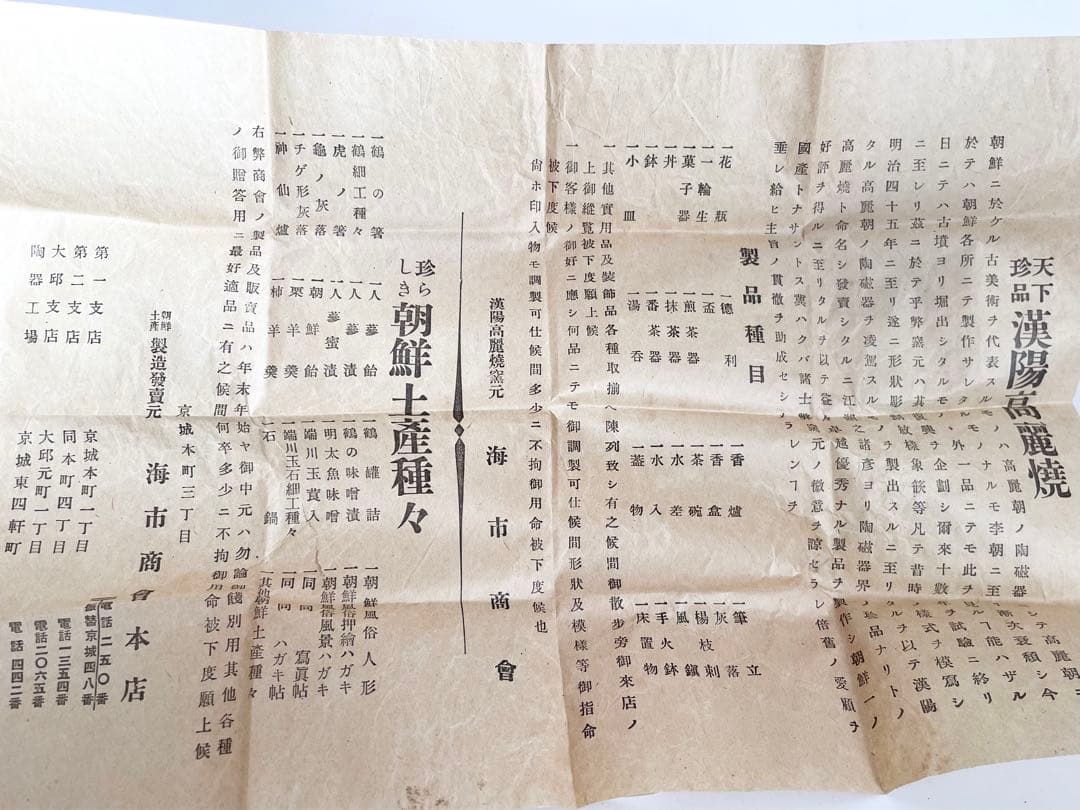 天下珍品 漢陽高麗燒
朝鮮ニ於ケル古美術ヲ代表スルモノハ高麗朝ノ陶磁器ニシテ高麗朝ニ
於テハ朝鮮各所ニテ製作サレタルモノナルモ李朝ニ至リ漸次衰頽シ今
日ニテハ古墳ヨリ堀出シタルモノノ外一品ニテモ此ヲ見ル能ハザル
ニ至レリ茲ニ於テ平弊窯元ハ其復興ヲ企劃シ爾來十數年ノ試驗ニ終リ
明治四十五年ニ至リ遂ニ形狀彫
タル高麗朝ノ陶磁器ヲ凌駕スル
高麗燒ト命名シ發賣シタルニ江湖之諸彦ヨリ陶磁器界ノ珍品ナリトノ
好評ヲ得ルニ至リタルヲ以テ益
國產トナサントス冀ハクバ諸士
垂レ給ヒ主旨ノ貫徹ヲ助成セシメラレンコヲ
製品種目
一花瓶 一德利 一香爐 一筆立
一一輪生 一盃 一香盒 一灰落
一菓子器 一煎茶器 一茶碗 一楊枝刺
一丼 一抹茶器 一水差 一風鎭
一鉢 一番茶器 一水入 一手火鉢
一小皿 一湯吞 一蓋物 一床置物
一其他實用品及裝飾品各種取揃へ陳列致シ有之候間御散步旁御來店ノ
上御縱覽被下度願上候
一御客樣ノ御好ニ應シ何品ニテモ御調製可仕候間形狀及模樣等御指命
被下度候
尙ホ印入物モ調製可仕候間多少ニ不拘御用命被下度候也
漢陽高麗燒窯元 海市商會
珍らしき 朝鮮土產種々
一鶴の箸 一人蔘飴 一鶴罐詰 一朝鮮風俗人形
一鶴細工種々 一人蔘漬 一鶴の味噌漬 一朝鮮風俗押繪ハガキ
一虎ノ箸 一人蔘蜜漬 一明太魚味噌 一朝鮮風俗風景ハガキ
一龜ノ灰落 一朝鮮飴 一端川玉莨入 一同寫眞帖
一チゲ形灰落 一栗羊羹 一端川玉石細工種々 一同ハガキ帖
一神仙爐 一柿羊羹 一石鍋 一其他朝鮮土產種々
右弊商會ノ製品及販賣品ハ年末年始ヤ御中元ハ勿論御餞別用其他各種
ノ御贈答用ニ最好適品ニ有之候間何卒多少ニ不拘御用命被下度願上候
京城本町三丁目
朝鮮土產製造發賣元 海市商會本店
電話二一五〇番
振替京城四八番
第一支店 京城本町一丁目 電話一三五四番
第二支店 同本町四丁目
大邱支店 大邱元町一丁目 電話二〇六五番
陶器工場 京城東四軒町 電話四四二番